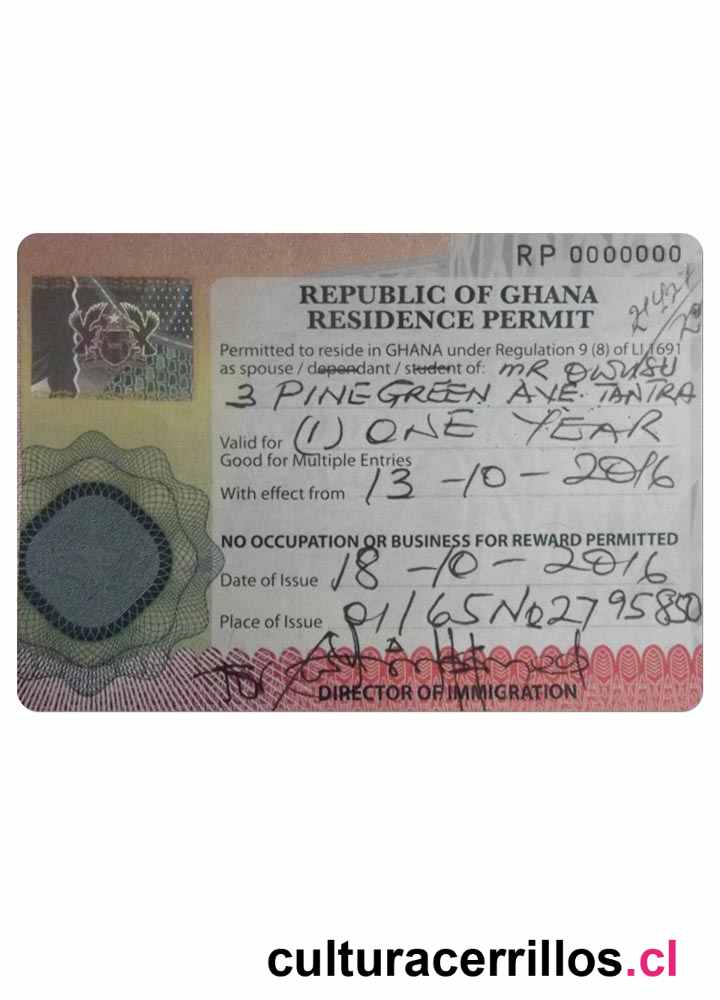 RP 0000000
REPUBLIC OF GHANA
RESIDENCE PERMIT
Permitted to reside in GHANA under Regulation 9 (8) of LI 1691
as spouse / dependant / student of: MR OWUSU
3 PINEGREEN AVE. TANTRA
Valid for (1) ONE YEAR
Good for Multiple Entries
With effect from 13-10-2016
NO OCCUPATION OR BUSINESS FOR REWARD PERMITTED
Date of Issue 18-10-2016
Place of Issue 01/65No2795850
DIRECTOR OF IMMIGRATION
culturacerrillos.cl